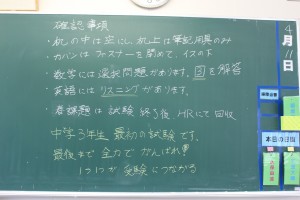 確認事項
・机の中は空にし、机上は筆記用具のみ
・カバンはファスナーを閉めて、イスの下
・数学には選択問題があります。図を解答
・英語にはリスニングがあります。
・春課題は試験終了後HRにて回収
中学3年生最初の試験です。
最後まで全力でがんばれ!!
1つ1つが受験につながる
4月11日